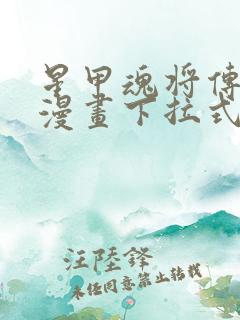 星甲魂将傳
漫畫下拉式
汪陸鋒
未经同意禁止转载